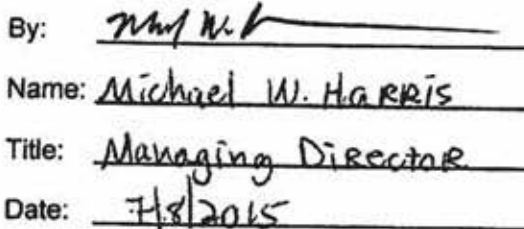 By:
Name: Michael W. HARRis
Title: Managing DiRectoR
Date: 7/8/2015